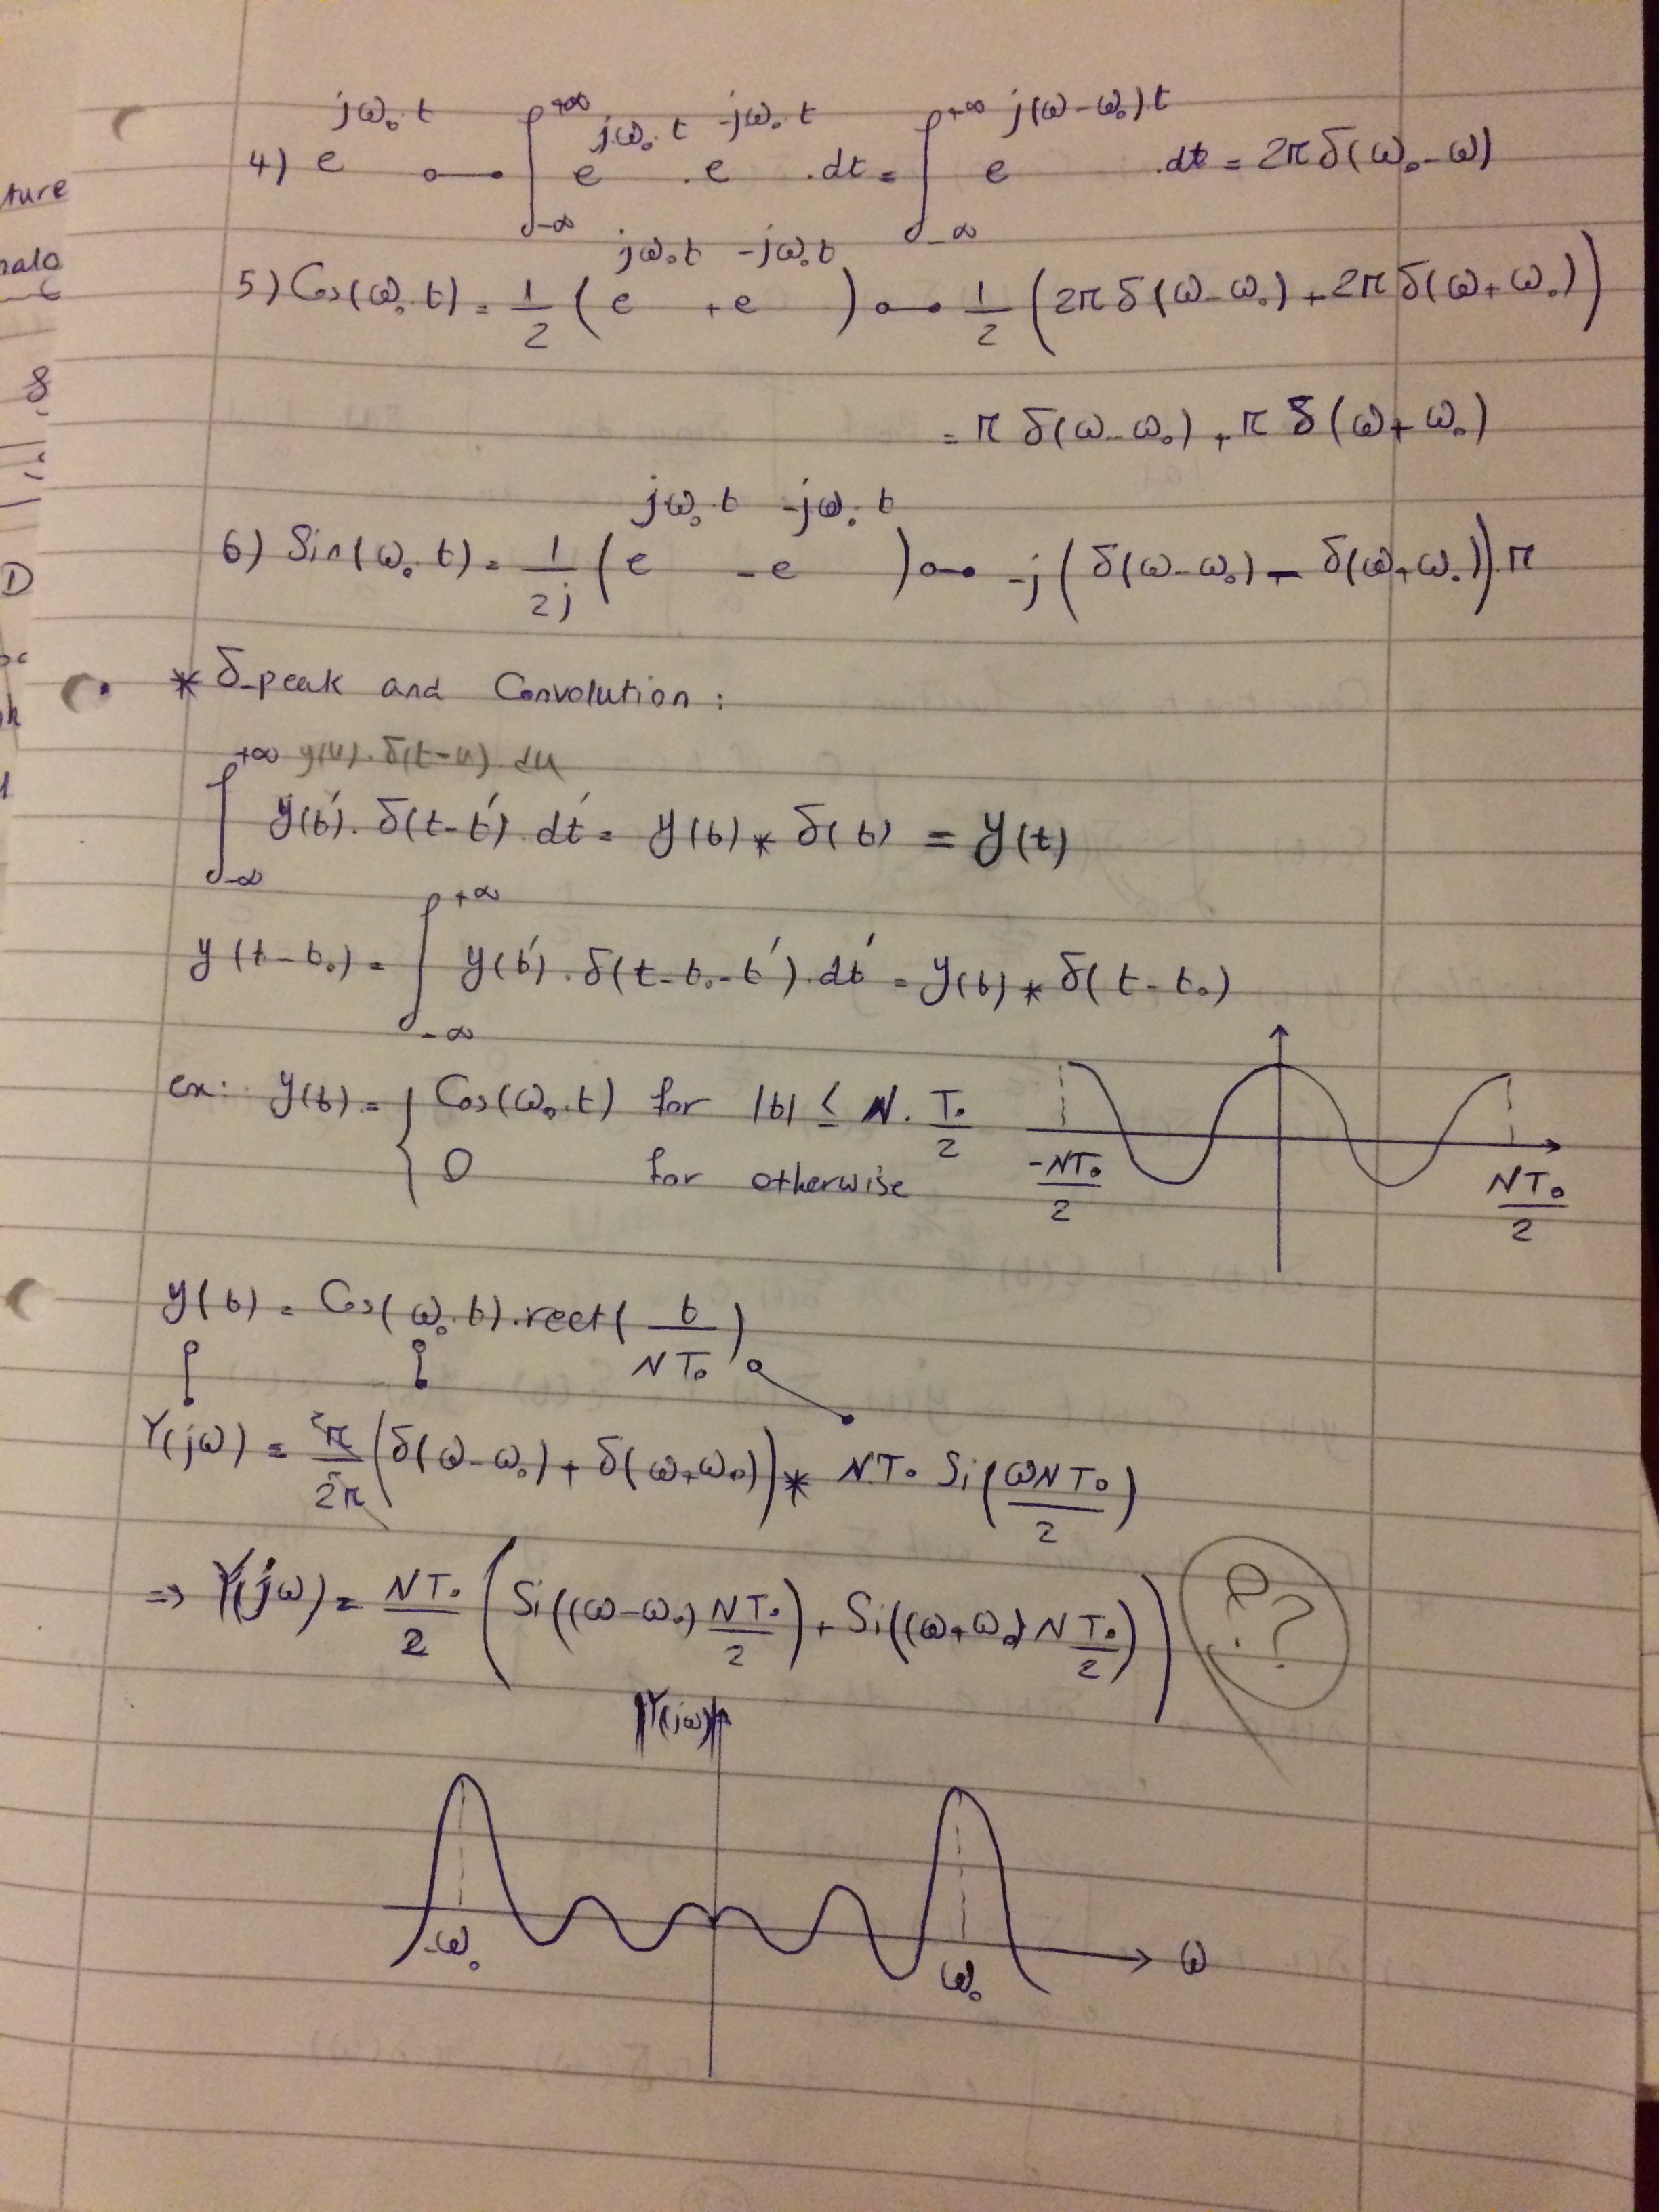 4) e^{jω₀.t} ○—● ∫_{-∞}^{+∞} e^{jω₀.t} . e^{-jω₀.t} .dt = ∫_{-∞}^{+∞} e^{j(ω-ω₀).t} .dt = 2π δ(ω₀-ω)
ture
5) Cos(ω₀.t) = 1/2 (e^{jω₀t} + e^{-jω₀t}) ○—● 1/2 (2π δ(ω-ω₀) + 2π δ(ω+ω₀))
8
= π δ(ω-ω₀) + π δ(ω+ω₀)
6) Sin(ω₀.t) = 1/2j (e^{jω₀.t} - e^{-jω₀.t}) ○—● -j(δ(ω-ω₀) - δ(ω+ω₀)).π
D
* δ-peak and Convolution:
y(u).δ(t-u).du
∫_{-∞}^{+∞} y(t').δ(t-t').dt' = y(t) * δ(t) = y(t)
y(t-t₀) = ∫_{-∞}^{+∞} y(t').δ(t-t₀-t').dt' = y(t) * δ(t-t₀)
ex: y(t) = { Cos(ω₀.t) for |t| ≤ N.T₀/2
0 for otherwise
-NT₀/2
NT₀/2
y(t) = Cos(ω₀.t).rect(t/NT₀)
Y(jω) = π/2π (δ(ω-ω₀) + δ(ω+ω₀)) * NT₀ Si(ωNT₀/2)
⇒ Y(jω) = NT₀/2 (Si((ω-ω₀) NT₀/2) + Si((ω+ω₀) N T₀/2)) ??
|Y(jω)|
-ω₀
ω₀
ω